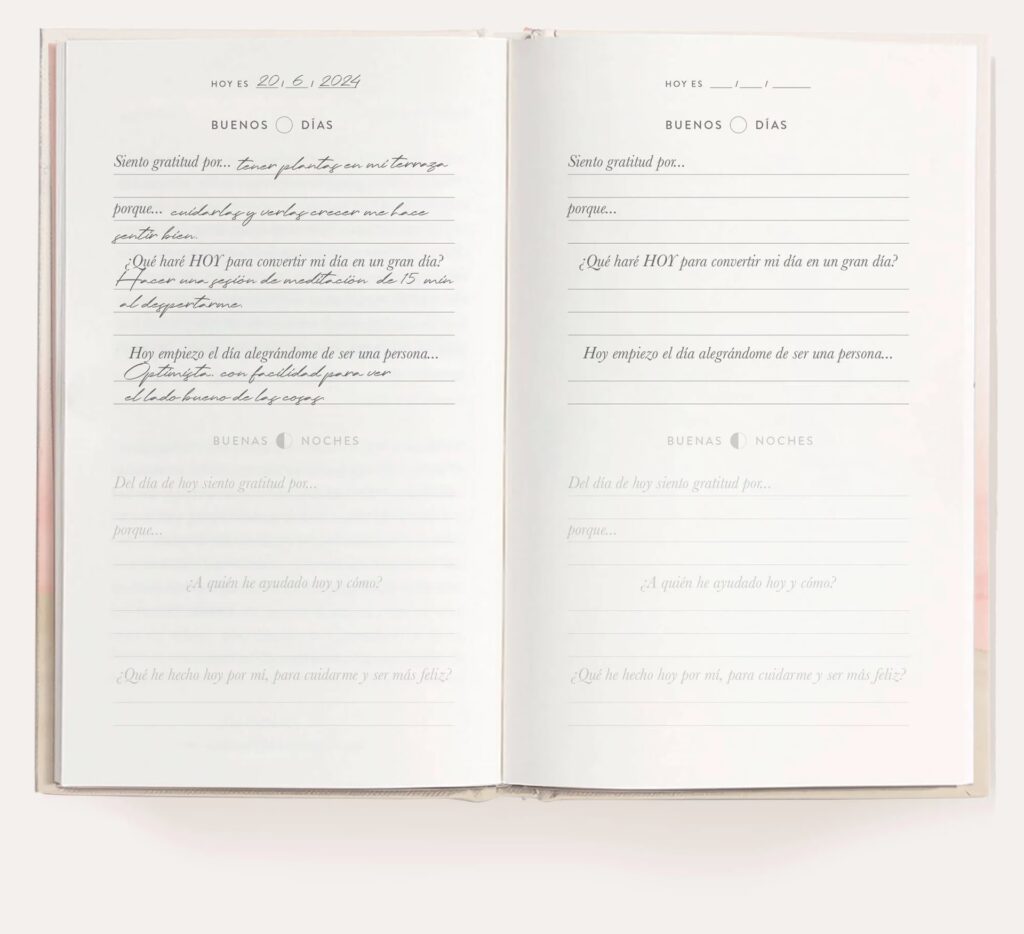 HOY ES 20 / 6 / 2024
BUENOS DÍAS
Siento gratitud por... tener plantas en mi terraza
porque... cuidarlas y verlas crecer me hace
sentir bien.
¿Qué haré HOY para convertir mi día en un gran día?
Hacer una sesión de meditación de 15 min
al despertarme.
Hoy empiezo el día alegrándome de ser una persona...
Optimista. con facilidad para ver
el lado bueno de las cosas.
BUENAS NOCHES
Del día de hoy siento gratitud por...
porque...
¿A quién he ayudado hoy y cómo?
¿Qué he hecho hoy por mí, para cuidarme y ser más feliz?
HOY ES ___ / ___ / _____
BUENOS DÍAS
Siento gratitud por...
porque...
¿Qué haré HOY para convertir mi día en un gran día?
Hoy empiezo el día alegrándome de ser una persona...
BUENAS NOCHES
Del día de hoy siento gratitud por...
porque...
¿A quién he ayudado hoy y cómo?
¿Qué he hecho hoy por mí, para cuidarme y ser más feliz?